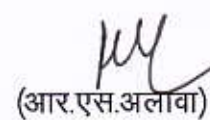 (आर.एस.अलावा)